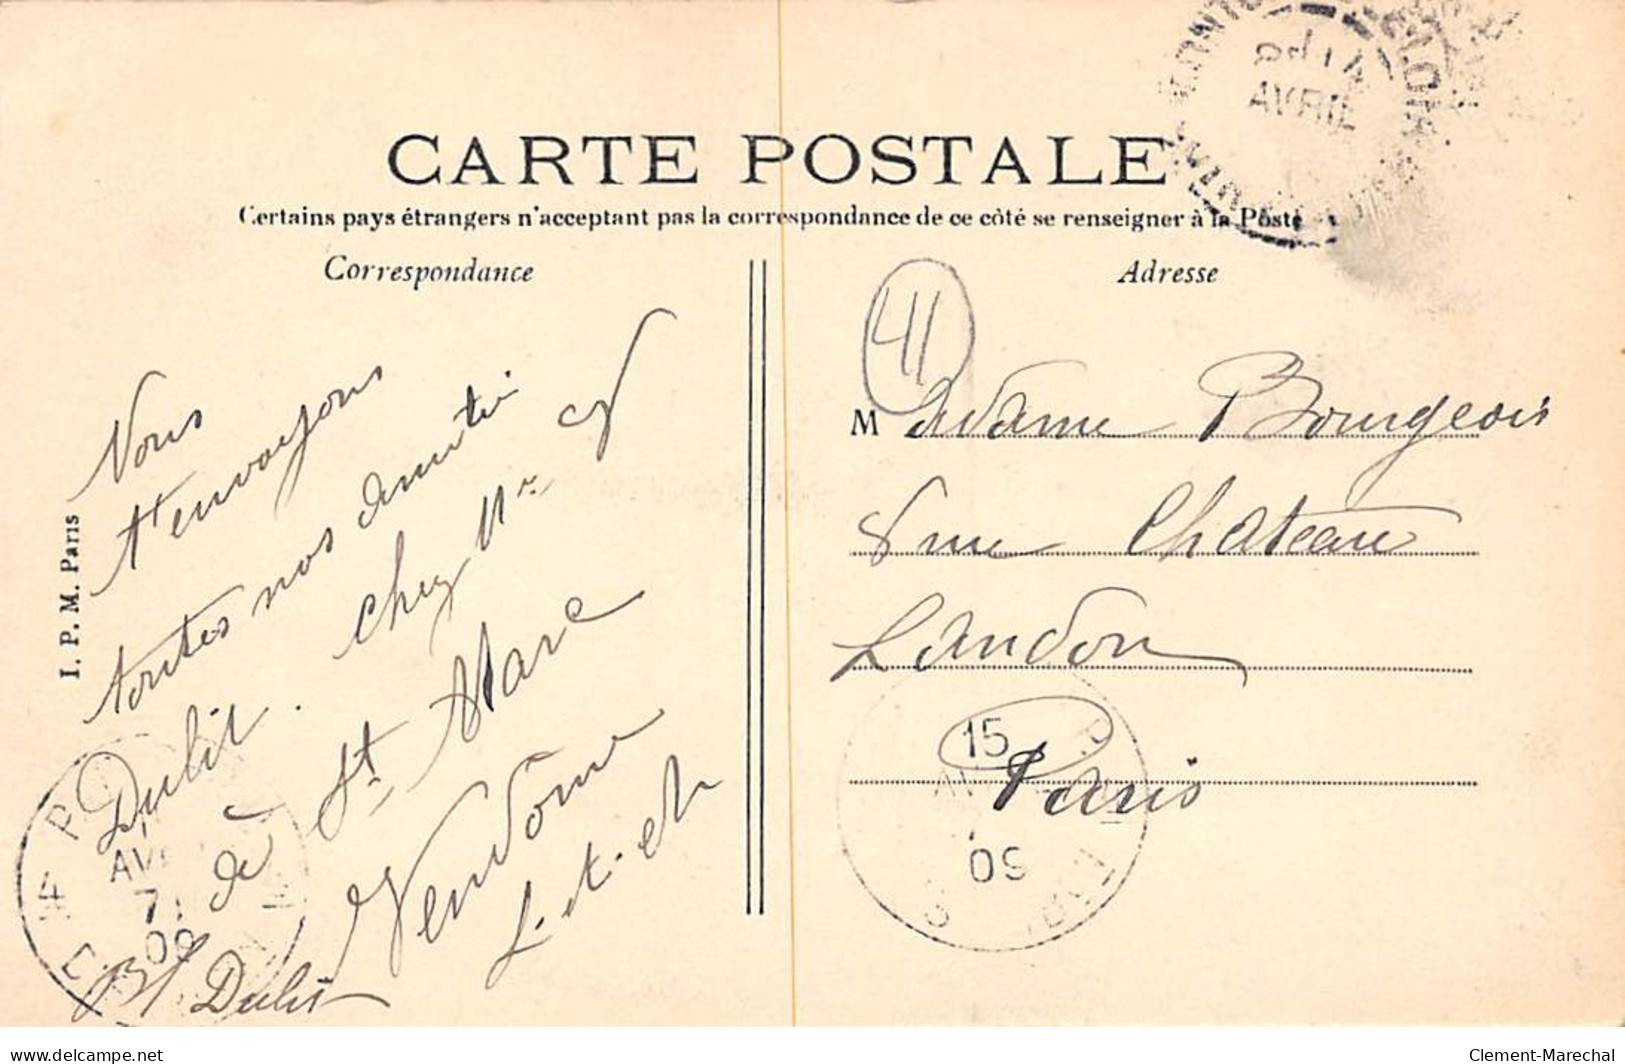 CARTE POSTALE
Certains pays étrangers n'acceptant pas la correspondance de ce côté se renseigner à la Poste
Correspondance
Adresse
I. P. M. Paris
Vous
envoyons
toutes nos amitié
Dulit. chez Mr
de St Marc
Vendome
L. et. ch
Dulit
41
Madame Bourgeois
8 rue Chateau
Landon
Paris
AVRIL
15
09
AV
7
09
delcampe.net
Clement-Marechal